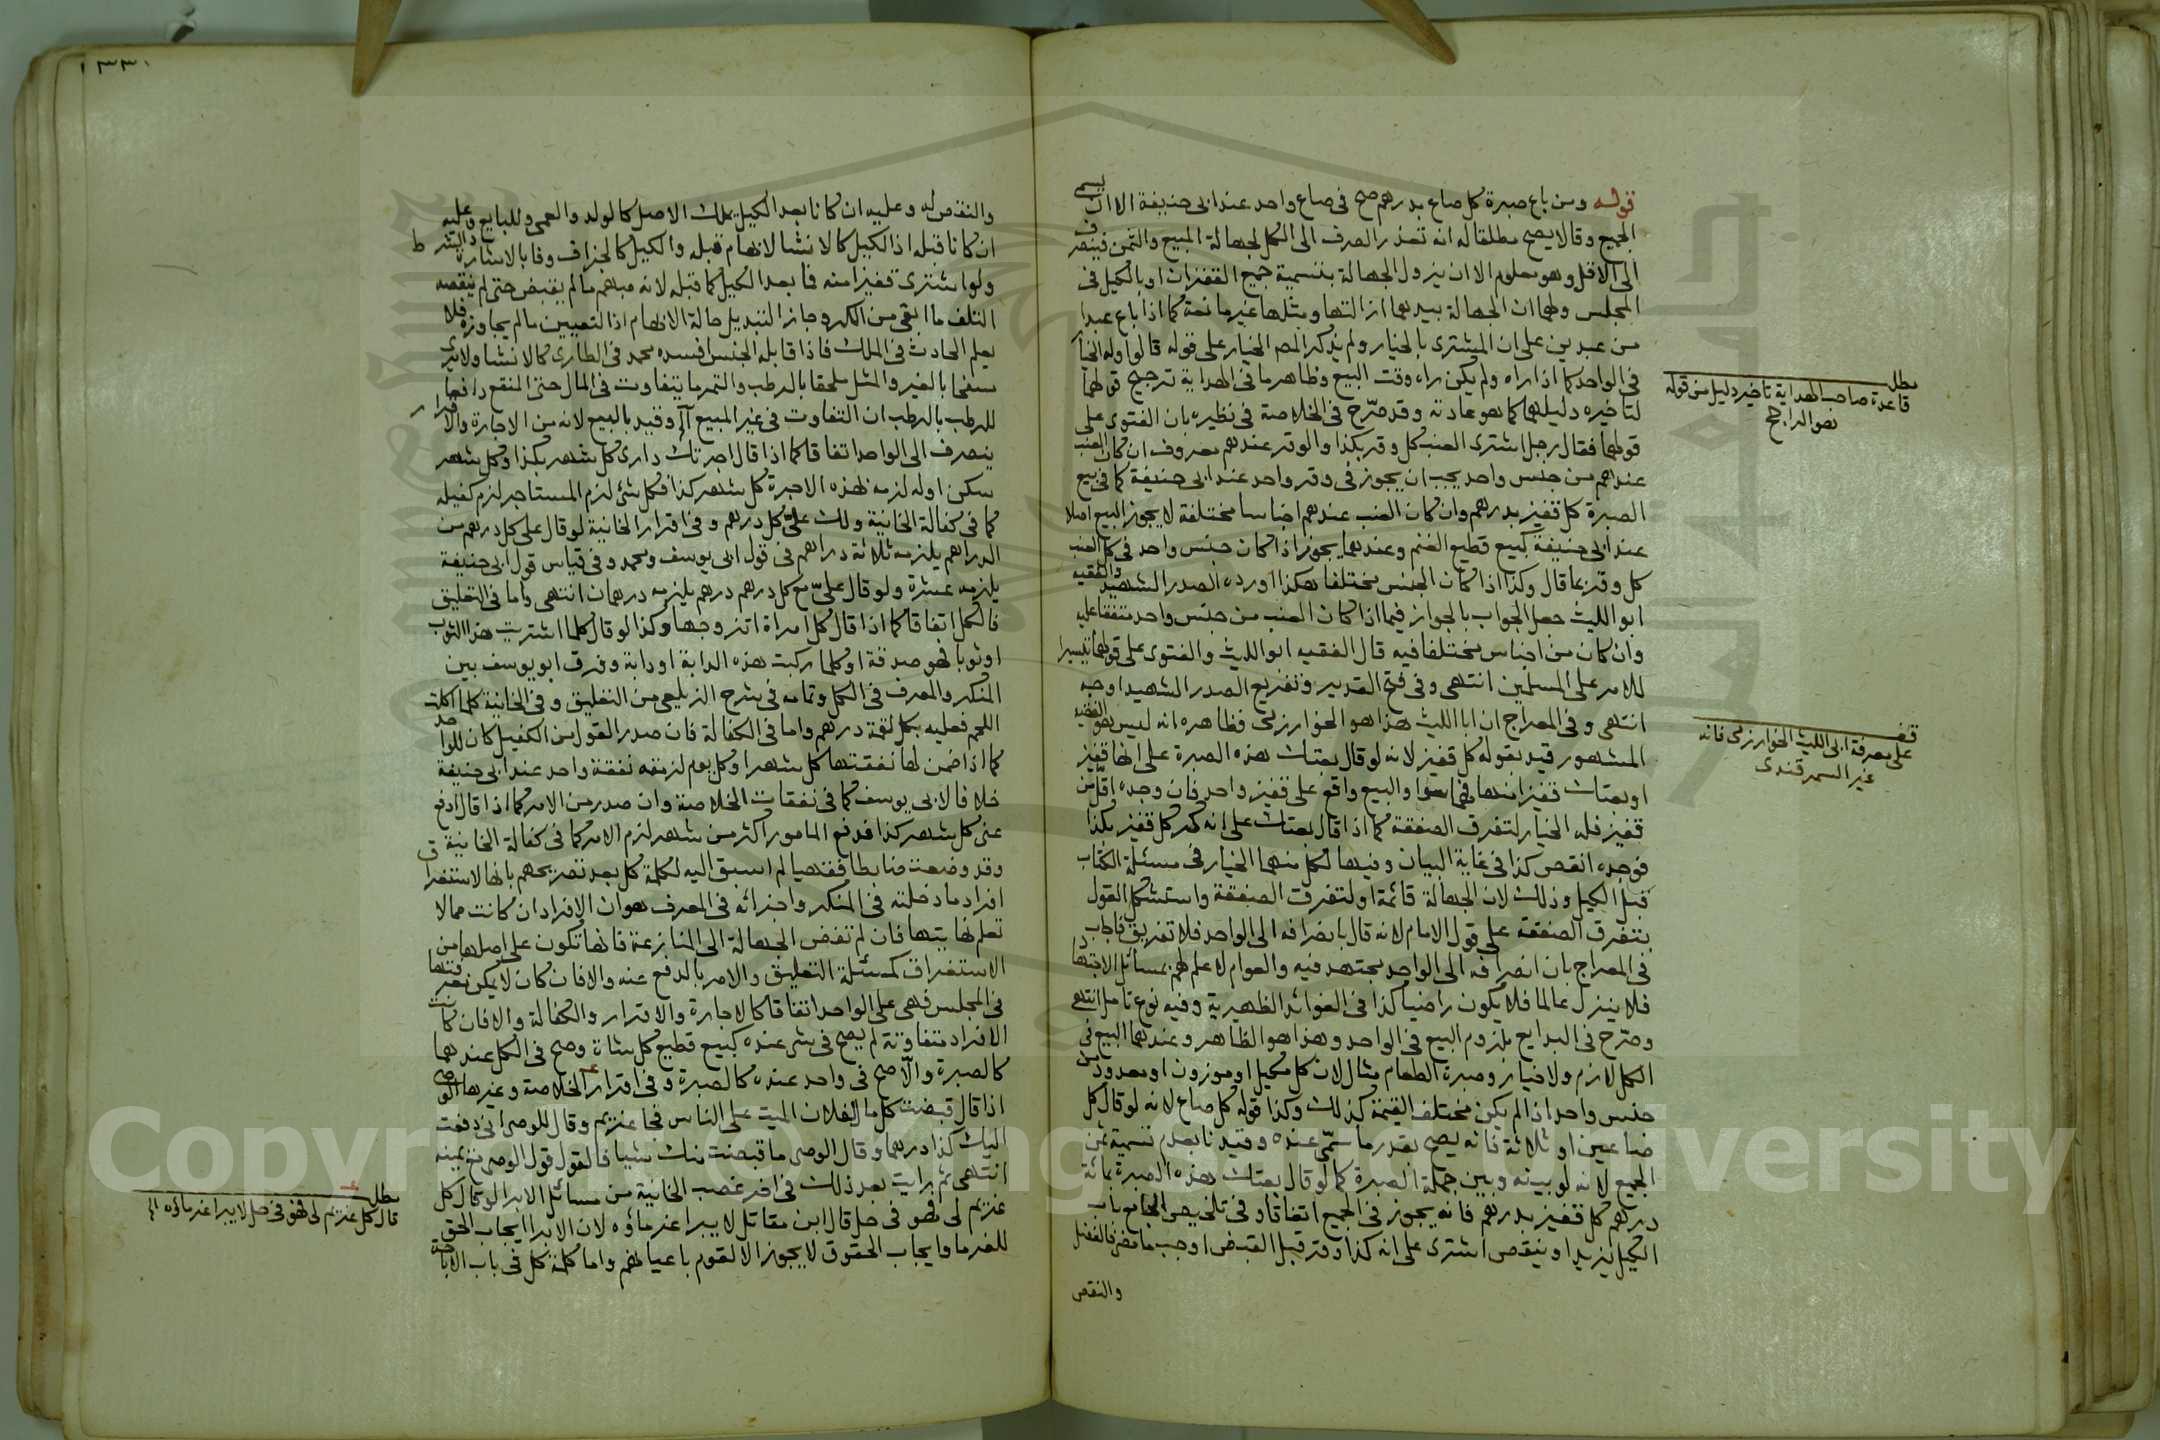 قوله ومن باع صبرة كل صاع بدرهم صح في صاع واحد عند ابي حنيفة الا ان يسمى
الجميع وقالا يصح مطلقا له انه تعذر الصرف الى الكل لجهالة المبيع والثمن فينصرف
الى الاقل وهو معلوم الا ان يزول الجهالة بتسمية جميع القفزان او بالكيل في
المجلس ولهما ان الجهالة بيدهما ازالتها ومثلها غير مانعة كما اذا باع عبدا
من عبدين على ان المشتري بالخيار ولم يذكر المص الخيار على قوله قالوا وله الخيار
في الواحد كما اذا راه ولم يكن راه وقت البيع وظاهر ما في الهداية ترجيح قولهما
لتاخيره دليلهما كما هو عادته وقد صرح في الخلاصة في نظيره بان الفتوى على
قولهما فقال رجل اشترى العنب كل وقر بكذا والوقر عندهم معروف ان كان العنب
عندهم من جنس واحد يجب ان يجوز في وقر واحد عند ابي حنيفة كما في بيع
الصبرة كل قفيز بدرهم وان كان العنب عندهم اجناسا مختلفة لا يجوز البيع اصلا
عند ابي حنيفة كبيع قطيع الغنم وعندهما يجوز اذا كان جنس واحد في كل العنب
كل وقر بما قال وكذا اذا كان الجنس مختلفا هكذا اورده الصدر الشهيد والفقيه
ابو الليث جعل الجواب بالجواز فيما اذا كان العنب من جنس واحد متفقا عليه
وان كان من اجناس مختلفا فيه قال الفقيه ابو الليث والفتوى على قولهما تيسيرا
للامر على المسلمين انتهى وفي فتح القدير وتفريع الصدر الشهيد اوجه
انتهى وفي المعراج ان ابا الليث هذا هو الخوارزمي فظاهره انه ليس هو الفقيه
المشهور قيد بقوله كل قفيز لانه لو قال بعتك هذه الصبرة على انها قفيز
او بعتك قفيزا منها فهما سوا والبيع واقع على قفيز واحد فان وجده اقل من
قفيز فله الخيار لتفرق الصفقة كما اذا قال بعتك على انه كر كل قفيز بكذا
فوجده انقص كذا في غاية البيان وفيها لكل منهما الخيار في مسئلة الكتاب
قبل الكيل وذلك لان الجهالة قائمة او لتفرق الصفقة واستشكل القول
بتفرق الصفقة على قول الامام لانه قال بانصرافه الى الواحد فلا تفريق فاجاب
في المعراج بان انصرافه الى الواحد مجتهد فيه والعوام لا علم لهم بمسائل الاجتهاد
فلا ينزل عالما فلا يكون راضيا كذا في الفوائد الظهيرية وفيه نوع تامل انتهى
وصرح في البدايع بلزوم البيع في الواحد وهذا هو الظاهر وعندهما البيع في
الكل لازم ولا خيار وصبرة الطعام مثال لان كل مكيل او موزون او معدود من
جنس واحد اذا لم يكن مختلف القيمة كذلك وكذا قوله كل صاع لانه لو قال كل
صاعين او ثلاثة فانه يصح بقدر ما سمى عنده وقيدنا بعدم تسمية ثمن
الجميع لانه لو بينه وبين جملة الصبرة كما لو قال بعتك هذه الصبرة بمائة
درهم كل قفيز بدرهم فانه يجوز في الجميع اتفاقا وفي تلخيص الجامع باب
الكيل يزيد او ينقص اشترى على انه كذا وقر قبل القبض اوجب ما تقرر فالفضل
والنقص
مطلب
قاعدة صاحب الهداية تاخير دليل من قوله
هو الراجح
قف
على معرفة ابي الليث الخوارزمي فانه
غير السمرقندي
١٣٣٠
والنقص له وعليه ان كانا بعد الكيل بملك الاصل كالولد والعمى وللبايع وعليه
ان كانا قبله اذ الكيل كالانشا لانهام قبله والكيل كالجزاف وفا بالاشارة دا البشر ط
ولو اشترى قفيزا منه فما بعد الكيل كما قبله لانه مبهم ما لم يقبض حتى لم ينقصه
التلف ما ابقى من الكر وجاز التبديل حالة الانهام اذ التعيين ما لم يجاوزه فلا
يعلم الحادث في الملك فاذا قابله الجنس افسده محمد في الطاري كالانشا ولا يرى
للرطب بالرطب ان التفاوت في غير المبيع اه وقيد بالبيع لانه من الاجارة والاقرار
ينصرف الى الواحد اتفاقا كما اذا قال اجرتك داري كل شهر بكذا وكل شهر
سكن اوله لزمه لهذه الاجرة كل شهر كذا فكل شئ لزم المستاجر لزم كفيله
كما في كفالة الخانية ولك علي كل درهم وفي اقرار الخانية لو قال علي كل درهم من
الدراهم يلزمه ثلاثة دراهم في قول ابي يوسف ومحمد وفي قياس قول ابي حنيفة
يلزمه عشرة ولو قال علي مع كل درهم درهم يلزمه درهمان انتهى واما في التعليق
فالكل اتفاقا كما اذا قال كل امراة اتزوجها وكذا لو قال كلما اشتريت هذا الثوب
او ثوبا فهو صدقة او كلما ركبت هذه الدابة او دابة وفرق ابو يوسف بين
المنكر والمعرف في الكل وتمامه في شرح الزيلعي من التعليق وفي الخانية كلما اكلت
اللحم فعليه بكل لقمة درهم واما في الكفالة فان صدر القول من الكفيل كان للواحد
كما اذا ضمن لها نفقتها كل شهر او كل يوم لزمه نفقة واحد عند ابي حنيفة
خلافا لابي يوسف كما في نفقات الخلاصة وان صدر من الامر كما اذا قال ادفع
عني كل شهر كذا فدفع المامور اكثر من شهر لزم الامر كما في كفالة الخانية
وقد وضعت ضابطا فقهيا لم اسبق اليه لكلمة كل بعد تصريحهم بانها لاستغراق
افراد ما دخلته في المنكر واجزائه في المعرف هو ان الافراد ان كانت مما لا
تعلم نهايتها فان لم تفض الجهالة الى المنازعة فانها تكون على اصلها من
الاستغراق كمسئلة التعليق والامر بالدفع عنه والا فان كان لا يمكن معرفتها
في المجلس فهي على الواحد اتفاقا كالاجارة والاقرار والكفالة والا فان كانت
الافراد متفاوتة لم يصح في شئ عنده كبيع قطيع كل شاة وصح في الكل عندهما
كالصبرة والا صح في واحد عنده كالصبرة وفي اقرار الخلاصة وغيرها الوصي
اذا قال قبضت كل مال لفلان الميت على الناس فجا غريم وقال للوصي اني دفعت
اليك كذا درهما وقال الوصي ما قبضت منك شيا فالقول قول الوصي مع يمينه
انتهى ثم رايت بعد ذلك في اخر غصب الخانية من مسائل الابرا لو قال كل
غريم لي فهو في حل قال ابن مقاتل لا يبرا غرماؤه لان الابرا ايجاب الحق
للغرما وايجاب الحقوق لا يجوز الا لقوم باعيانهم واما كلمة كل في باب الاباحة
مطلب
قال كل غريم لي فهو في حل لا يبرا غرماؤه الخ
Copyright © King Saud University